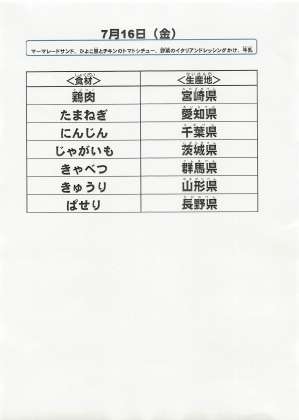 7月16日（金）
マーマレードサンド、ひよこ豆とチキンのトマトシチュー、野菜のイタリアンドレッシングかけ、牛乳
＜食材＞ ＜生産地＞
鶏肉 宮崎県
たまねぎ 愛知県
にんじん 千葉県
じゃがいも 茨城県
きゃべつ 群馬県
きゅうり 山形県
ぱせり 長野県